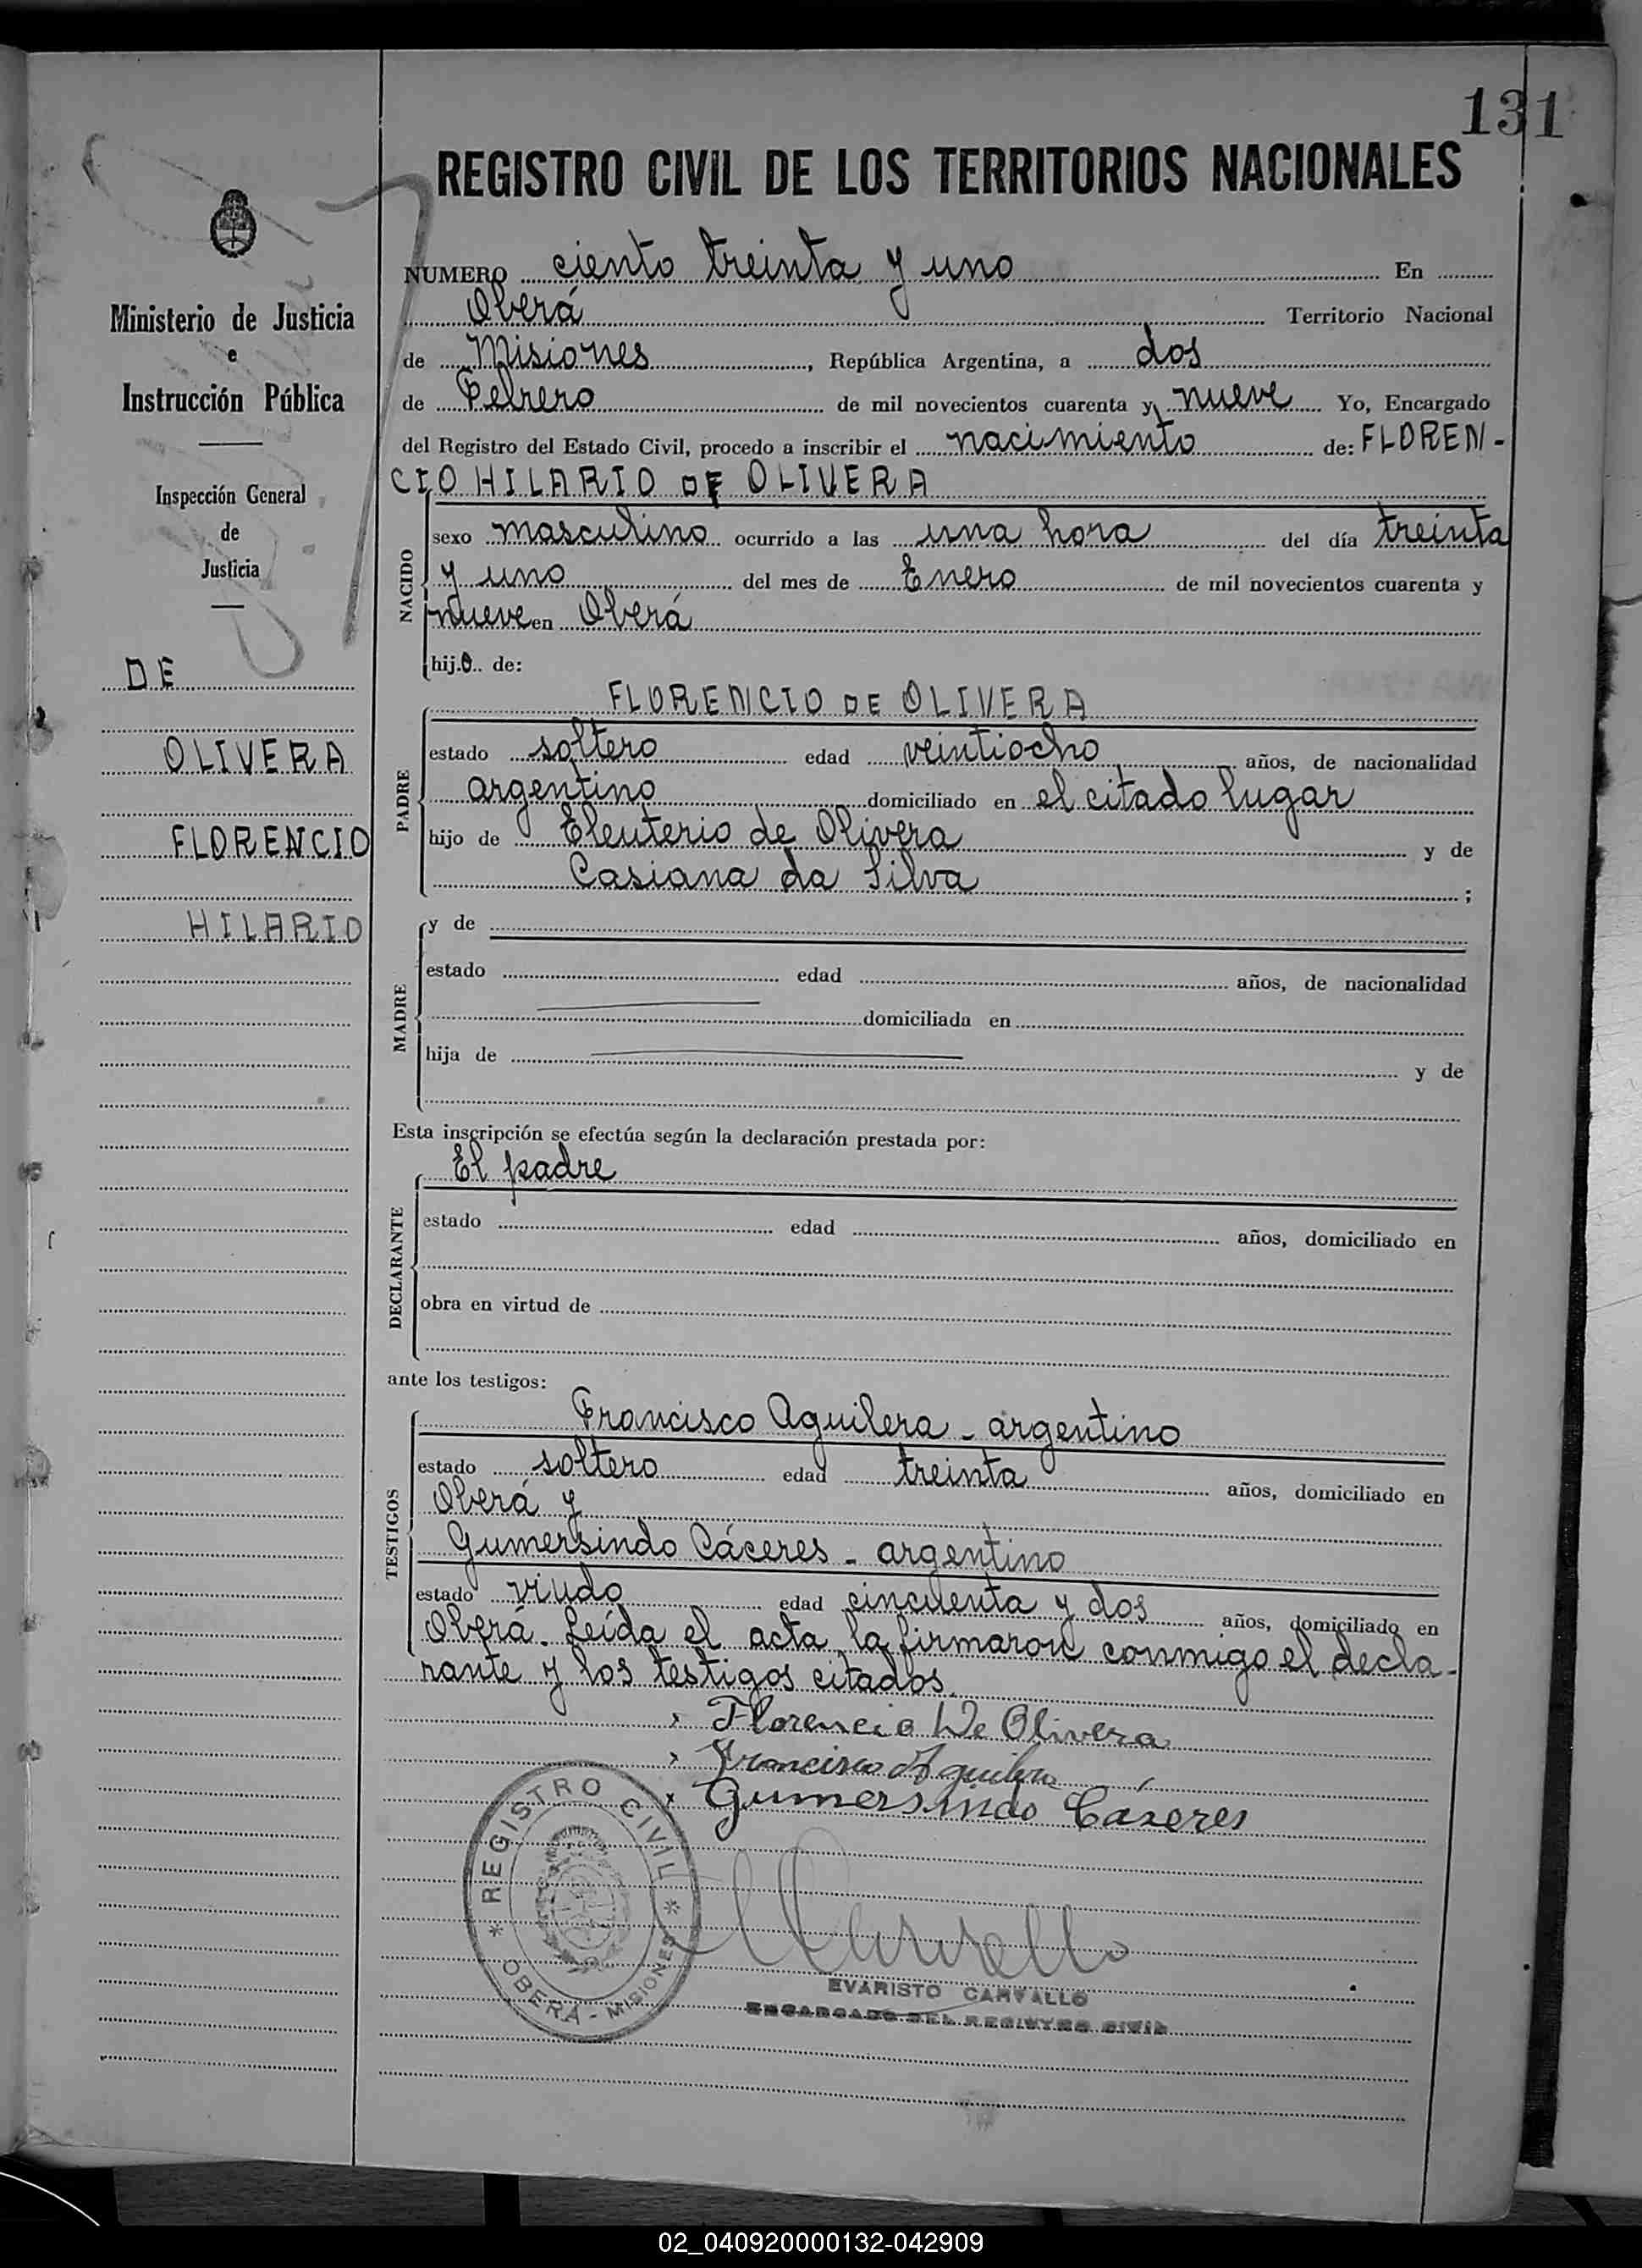 131
REGISTRO CIVIL DE LOS TERRITORIOS NACIONALES
Ministerio de Justicia
e
Instrucción Pública
Inspección General
de
Justicia
DE
OLIVERA
FLORENCIO
HILARIO
NUMERO ciento treinta y uno En
Oberá Territorio Nacional
de Misiones, República Argentina, a dos
de Febrero de mil novecientos cuarenta y nueve Yo, Encargado
del Registro del Estado Civil, procedo a inscribir el nacimiento de: FLOREN-
CIO HILARIO DE OLIVERA
NACIDO
sexo masculino ocurrido a las una hora del día treinta
y uno del mes de Enero de mil novecientos cuarenta y
nueve en Oberá
hijo de:
PADRE
FLORENCIO DE OLIVERA
estado soltero edad veintiocho años, de nacionalidad
argentino domiciliado en el citado lugar
hijo de Eleuterio de Olivera y de
Casiana da Silva ;
MADRE
y de
estado edad años, de nacionalidad
domiciliada en
hija de y de
Esta inscripción se efectúa según la declaración prestada por:
DECLARANTE
El padre
estado edad años, domiciliado en
obra en virtud de
ante los testigos:
TESTIGOS
Francisco Aguilera - argentino
estado soltero edad treinta años, domiciliado en
Oberá y
Gumersindo Cáceres - argentino
estado viudo edad cincuenta y dos años, domiciliado en
Oberá. Leída el acta, la firmaron conmigo el decla-
rante y los testigos citados.
Florencio De Olivera
Francisco Aguilera
Gumersindo Cáseres
REGISTRO CIVIL
* OBERÁ - MISIONES *
EVARISTO CARVALLO
ENCARGADO DEL REGISTRO CIVIL
02_040920000132-042909